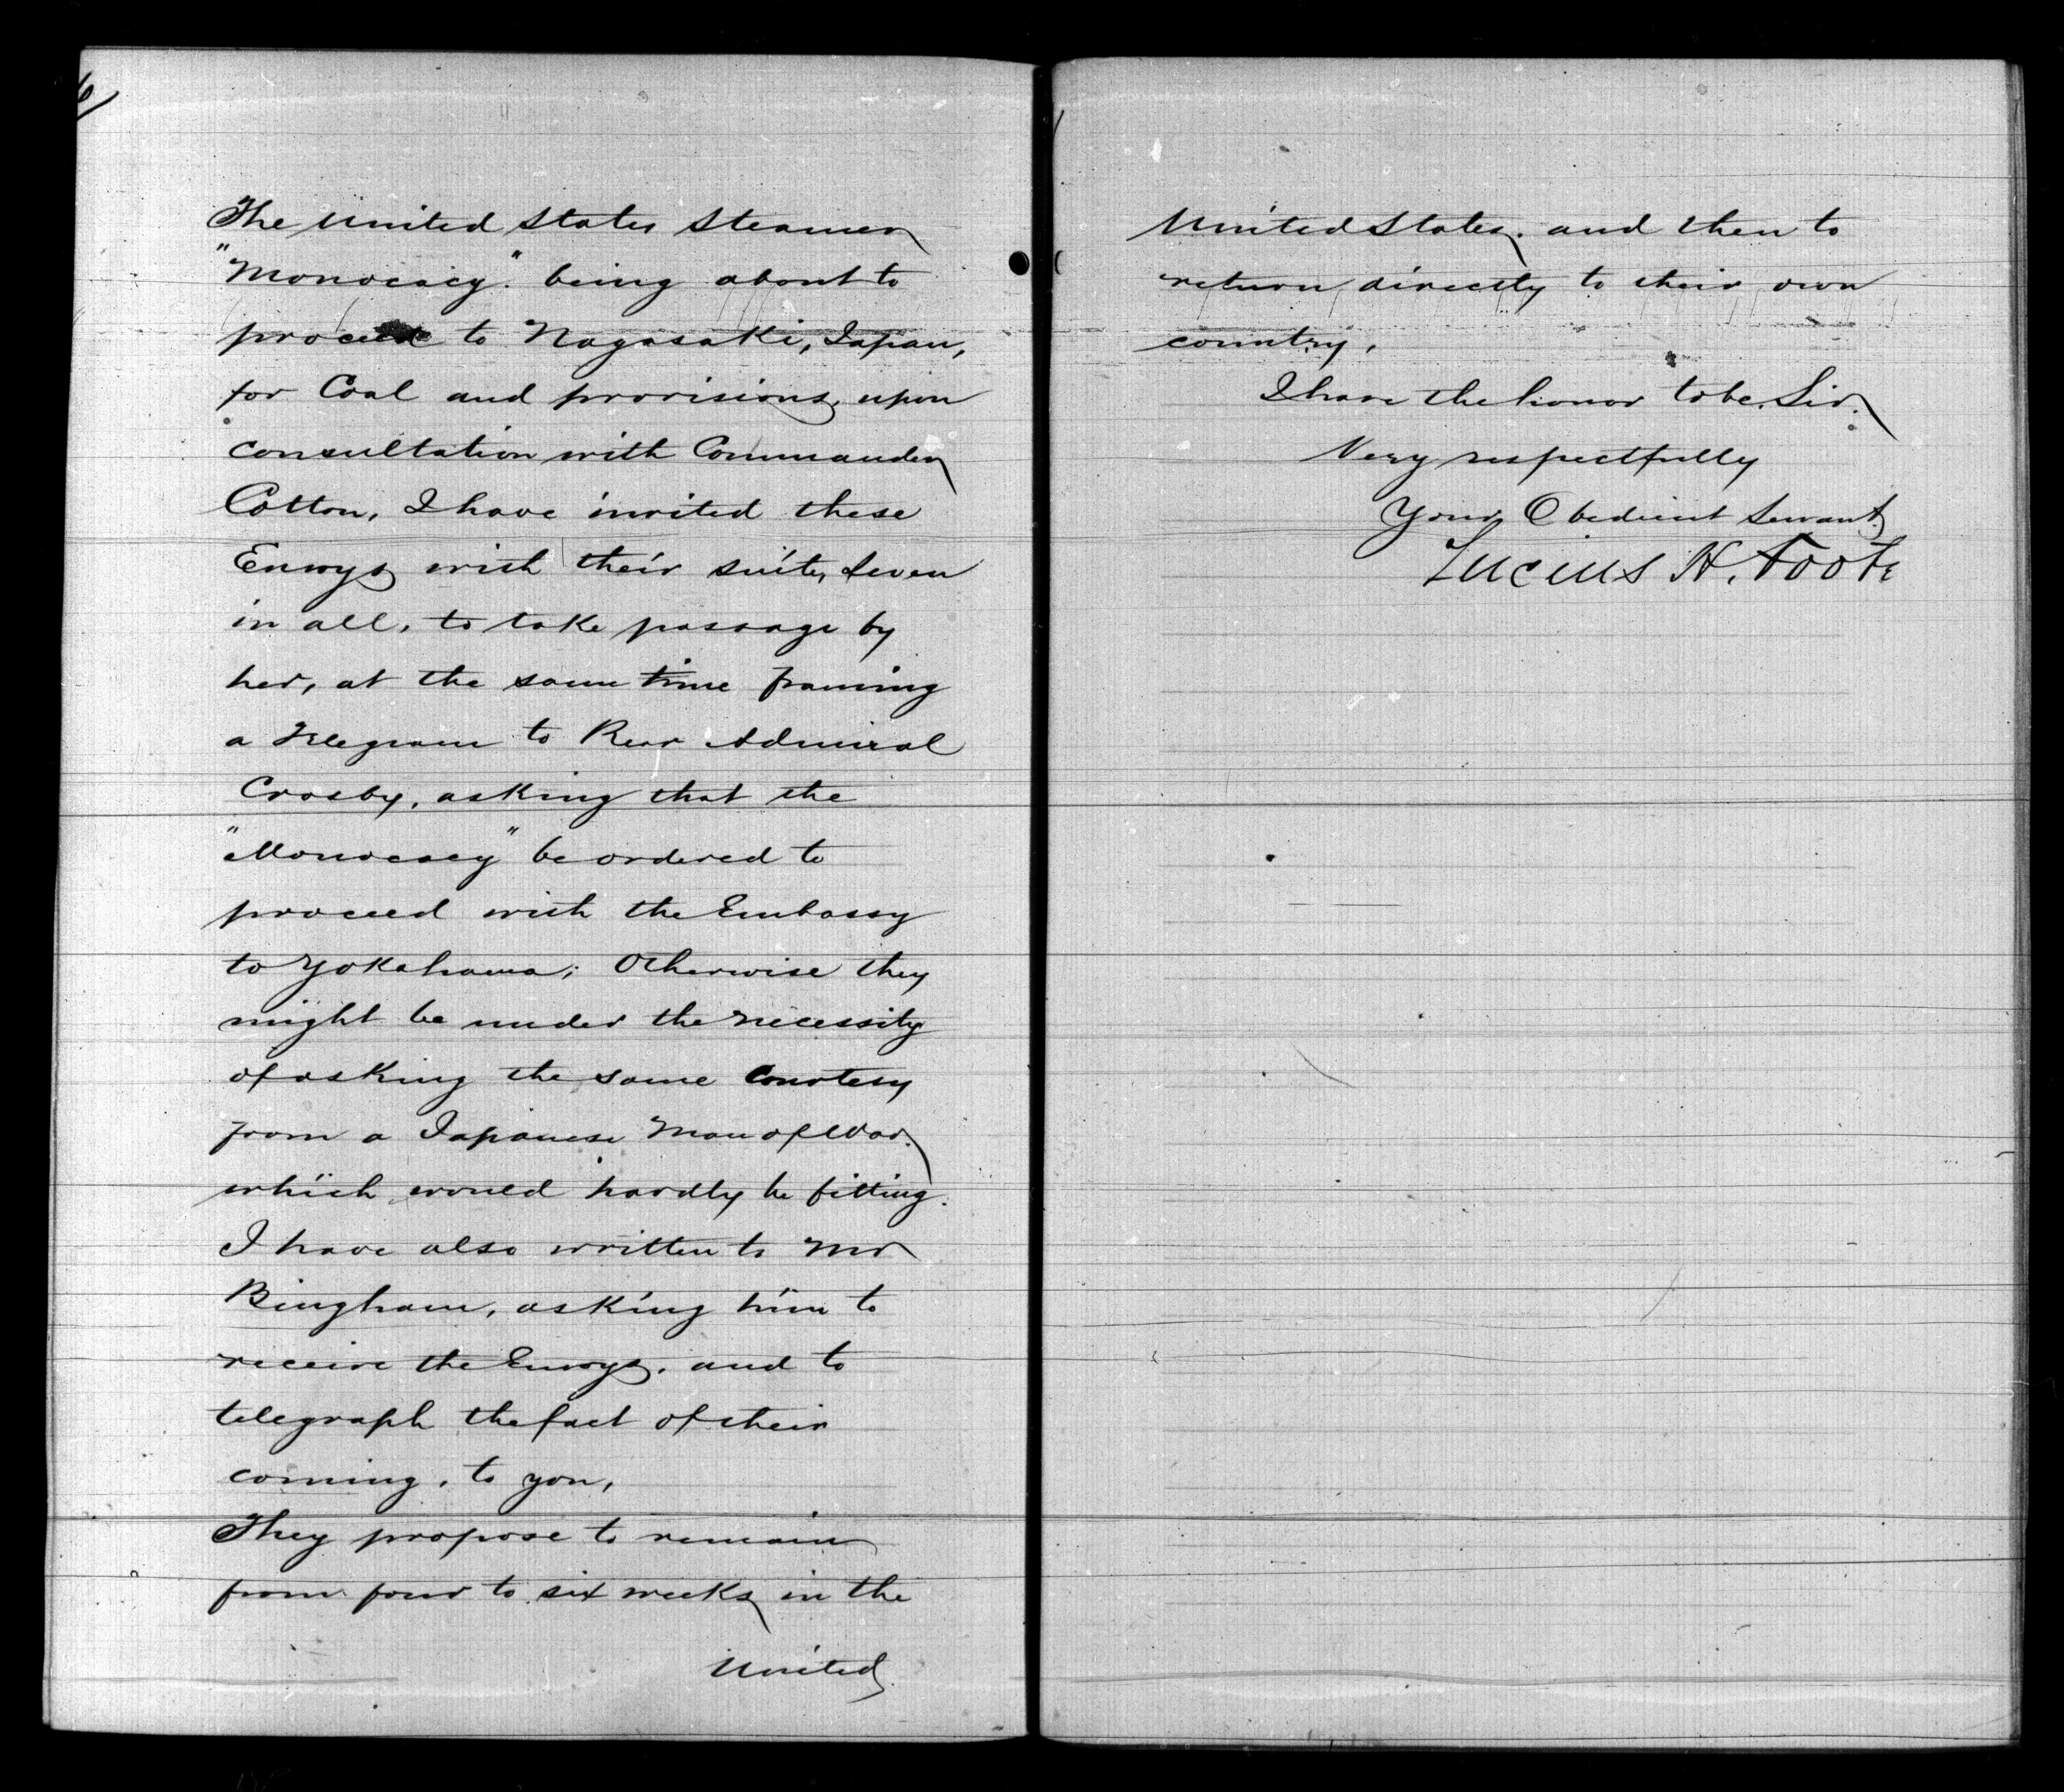 The United States Steamer
"Monocacy." being about to
proceed to Nagasaki, Japan,
for Coal and provisions, upon
consultation with Commander
Cotton, I have invited these
Envoys with their suite, seven
in all, to take passage by
her, at the same time framing
a Telegram to Rear Admiral
Crosby, asking that the
"Monocacy" be ordered to
proceed with the Embassy
to Yokahama; Otherwise they
might be under the necessity
of asking the same Courtesy
from a Japanese Man of War.
which would hardly be fitting.
I have also written to Mr
Bingham, asking him to
receive the Envoys. and to
telegraph the fact of their
coming, to you,
They propose to remain
from four to six weeks in the
United
United States. and then to
return directly to their own
country,
I have the honor to be. Sir.
Very respectfully
Your Obedient Servant.
Lucius H. Foote